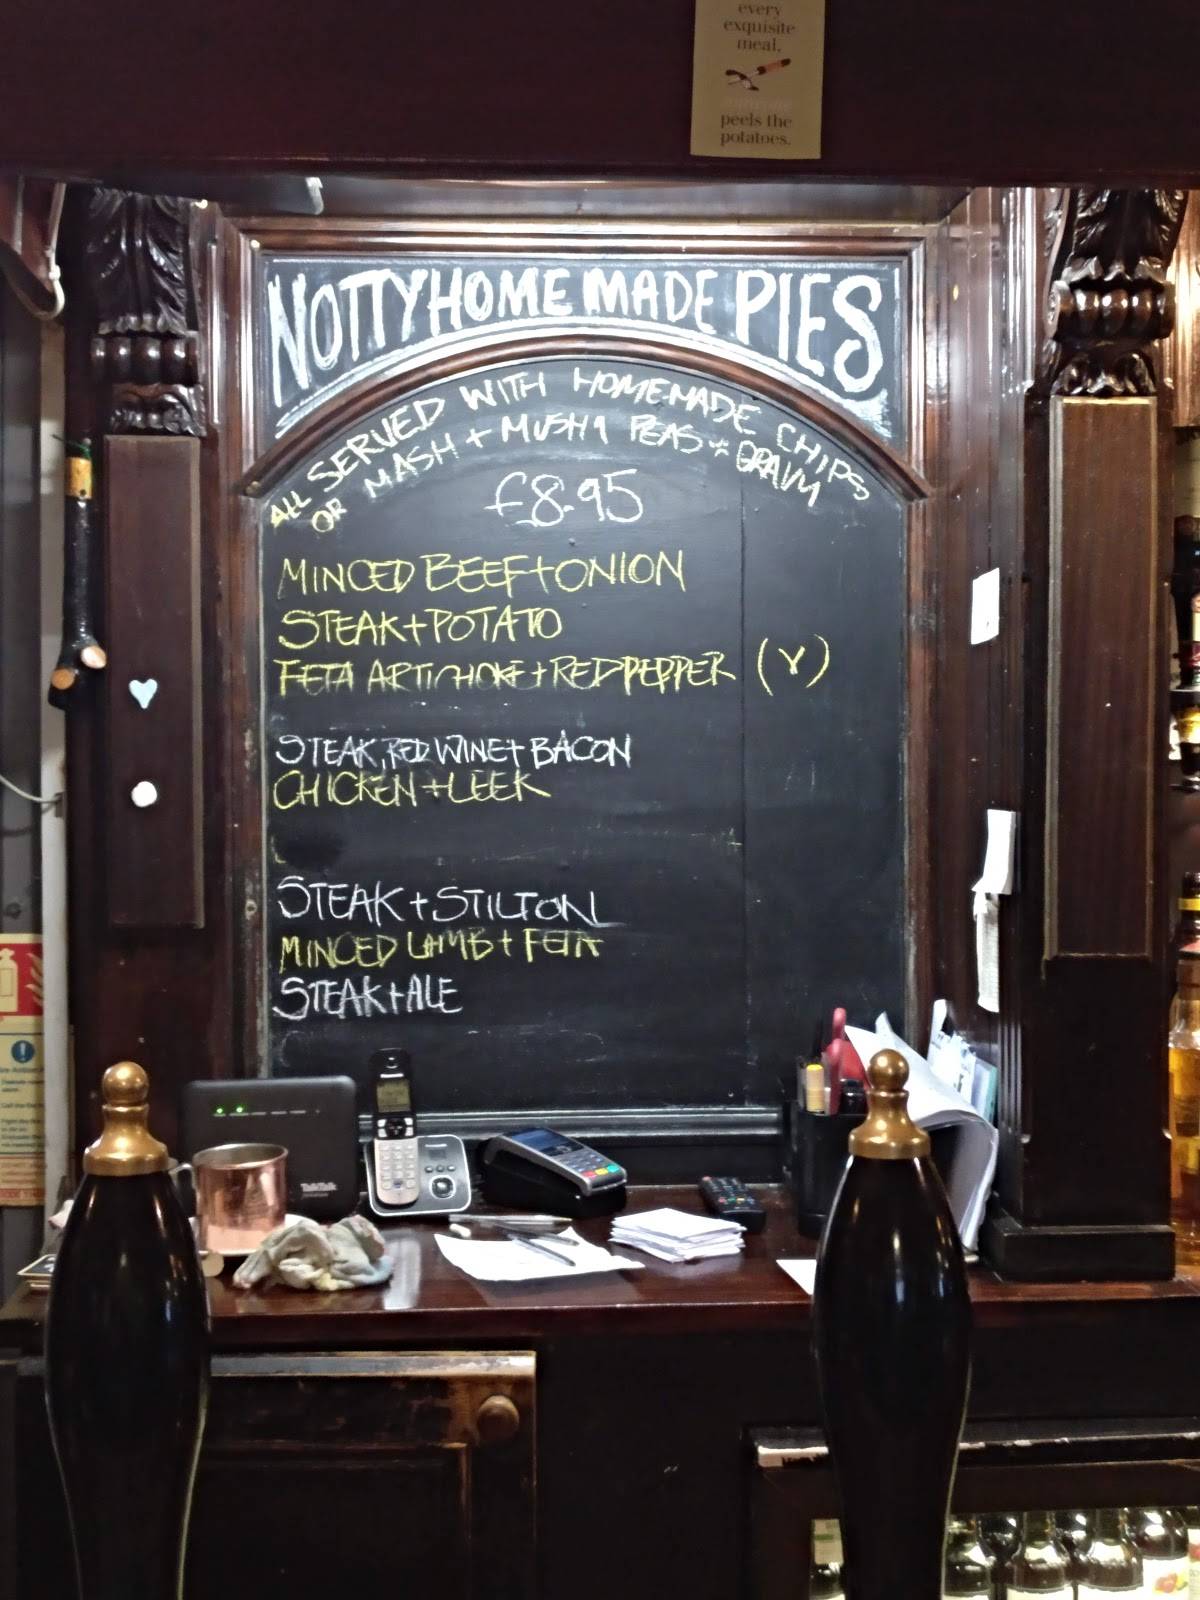 every
exquisite
meal,
peels the
potatoes.
NOTTY HOME MADE PIES
ALL SERVED WITH HOMEMADE CHIPS
OR MASH + MUSHY PEAS + GRAVY
£8.95
MINCED BEEF + ONION
STEAK + POTATO
FETA ARTICHOKE + RED PEPPER (V)
STEAK, RED WINE + BACON
CHICKEN + LEEK
STEAK + STILTON
MINCED LAMB + FETA
STEAK + ALE
TalkTalk